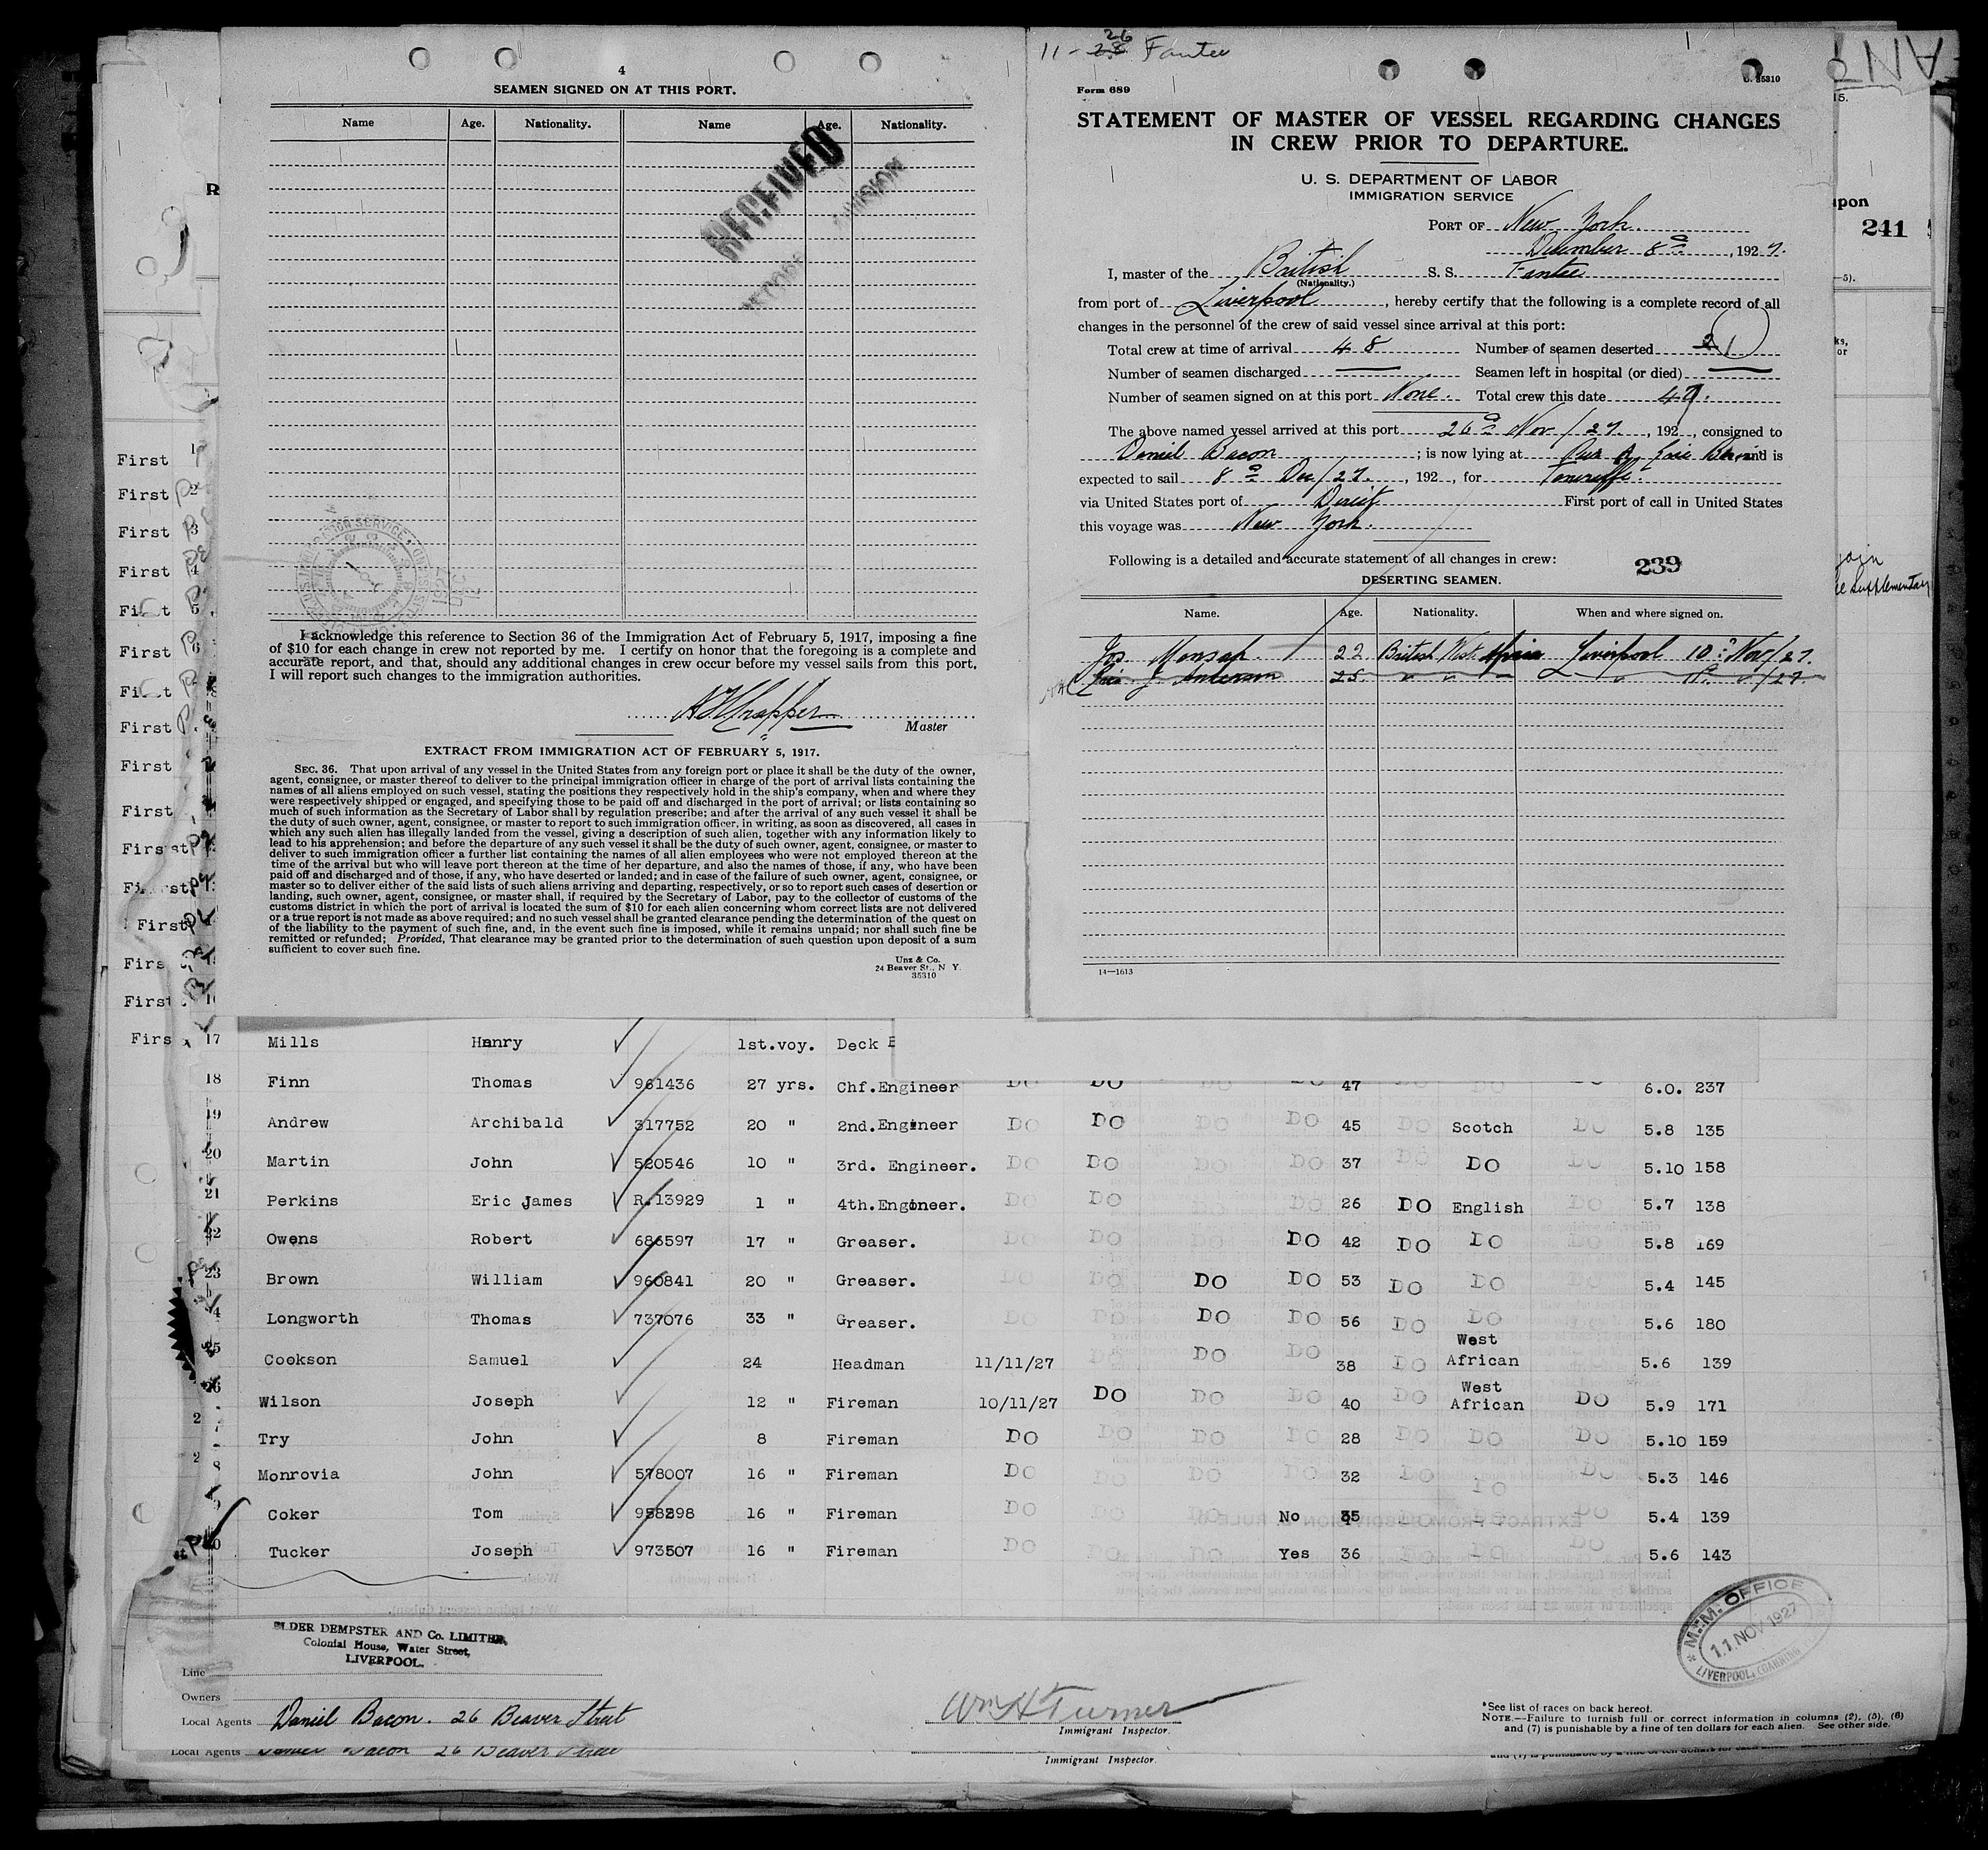 4
SEAMEN SIGNED ON AT THIS PORT.
Name Age. Nationality. Name Age. Nationality.
RECEIVED
DIVISION
RECORD
I acknowledge this reference to Section 36 of the Immigration Act of February 5, 1917, imposing a fine
of $10 for each change in crew not reported by me. I certify on honor that the foregoing is a complete and
accurate report, and that, should any additional changes in crew occur before my vessel sails from this port,
I will report such changes to the immigration authorities.
Master
EXTRACT FROM IMMIGRATION ACT OF FEBRUARY 5, 1917.
SEC. 36. That upon arrival of any vessel in the United States from any foreign port or place it shall be the duty of the owner,
agent, consignee, or master thereof to deliver to the principal immigration officer in charge of the port of arrival lists containing the
names of all aliens employed on such vessel, stating the positions they respectively hold in the ship's company, when and where they
were respectively shipped or engaged, and specifying those to be paid off and discharged in the port of arrival; or lists containing so
much of such information as the Secretary of Labor shall by regulation prescribe; and after the arrival of any such vessel it shall be
the duty of such owner, agent, consignee, or master to report to such immigration officer, in writing, as soon as discovered, all cases in
which any such alien has illegally landed from the vessel, giving a description of such alien, together with any information likely to
lead to his apprehension; and before the departure of any such vessel it shall be the duty of such owner, agent, consignee, or master to
deliver to such immigration officer a further list containing the names of all alien employees who were not employed thereon at the
time of the arrival but who will leave port thereon at the time of her departure, and also the names of those, if any, who have been
paid off and discharged and of those, if any, who have deserted or landed; and in case of the failure of such owner, agent, consignee, or
master so to deliver either of the said lists of such aliens arriving and departing, respectively, or so to report such cases of desertion or
landing, such owner, agent, consignee, or master shall, if required by the Secretary of Labor, pay to the collector of customs of the
customs district in which the port of arrival is located the sum of $10 for each alien concerning whom correct lists are not delivered
or a true report is not made as above required; and no such vessel shall be granted clearance pending the determination of the quest on
of the liability to the payment of such fine, and, in the event such fine is imposed, while it remains unpaid; nor shall such fine be
remitted or refunded; Provided, That clearance may be granted prior to the determination of such question upon deposit of a sum
sufficient to cover such fine.
Unz & Co.
24 Beaver St., N Y.
35310
11-28 26 Fantee
Form 689
35310
STATEMENT OF MASTER OF VESSEL REGARDING CHANGES
IN CREW PRIOR TO DEPARTURE.
U. S. DEPARTMENT OF LABOR
IMMIGRATION SERVICE
PORT OF New York.
December 8th, 1927.
I, master of the British S. S. Fantee
(Nationality.)
from port of Liverpool, hereby certify that the following is a complete record of all
changes in the personnel of the crew of said vessel since arrival at this port:
Total crew at time of arrival 48 Number of seamen deserted 1
Number of seamen discharged — Seamen left in hospital (or died) —
Number of seamen signed on at this port None. Total crew this date 47.
The above named vessel arrived at this port 26th Nov/27, 192 , consigned to
Daniel Bacon; is now lying at Pier Erie and is
expected to sail 8th Dec/27, 192 , for Teneriffe.
via United States port of Direct First port of call in United States
this voyage was New York.
Following is a detailed and accurate statement of all changes in crew:
239
DESERTING SEAMEN.
Name. Age. Nationality. When and where signed on.
Jos. Mensah. 22 British West Africa Liverpool 10th Nov/27.
J. Anderson 25 " " " L " 11th " /27.
14—1613
upon
241
Supplementary
First 1
First 2
First 3
First 4
First 5
First 6
First
First
First
First
First
First
First
First
First
17 Mills Henry 1st.voy. Deck
18 Finn Thomas 961436 27 yrs. Chf.Engineer DO DO DO DO 47 DO DO DO 6.0. 237
19 Andrew Archibald 317752 20 " 2nd.Engineer DO DO DO 45 DO Scotch DO 5.8 135
20 Martin John 520546 10 " 3rd. Engineer. DO DO DO DO 37 DO DO DO 5.10 158
21 Perkins Eric James R.13929 1 " 4th.Engineer. DO DO DO DO 26 DO English DO 5.7 138
22 Owens Robert 686597 17 " Greaser. DO DO DO DO 42 DO DO DO 5.8 169
23 Brown William 960841 20 " Greaser. DO DO DO DO 53 DO DO DO 5.4 145
24 Longworth Thomas 737076 33 " Greaser. DO DO DO DO 56 DO DO 5.6 180
25 Cookson Samuel 24 Headman 11/11/27 DO DO DO 38 DO West African 5.6 139
26 Wilson Joseph 12 " Fireman 10/11/27 DO DO DO 40 DO West African DO 5.9 171
27 Try John 8 Fireman DO DO DO DO 28 DO DO DO 5.10 159
28 Monrovia John 578007 16 " Fireman DO DO DO DO 32 DO DO DO 5.3 146
Coker Tom 958298 16 " Fireman DO DO DO No 35 DO DO DO 5.4 139
Tucker Joseph 973507 16 " Fireman DO DO DO Yes 36 DO DO DO 5.6 143
ELDER DEMPSTER AND Co. LIMITED,
Colonial House, Water Street,
LIVERPOOL.
Line
Owners
Local Agents Daniel Bacon. 26 Beaver Street
Wm H Turner
Immigrant Inspector.
M.M. OFFICE
11 NOV 1927
LIVERPOOL
*See list of races on back hereof.
NOTE.—Failure to turnish full or correct information in columns (2), (5), (6)
and (7) is punishable by a fine of ten dollars for each alien. See other side.
Local Agents Daniel Bacon 26 Beaver Street
Immigrant Inspector.